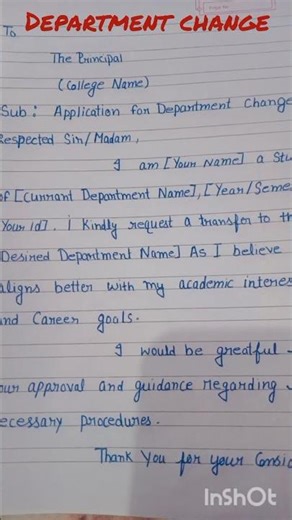 DEPARTMENT CHANGE
To
The Principal
(College Name)
Sub: Application for Department Change
Respected Sir/Madam,
I am [Your Name] a Stu
of [Currant Department Name], [Year/Seme
Your id]. I Kindly request a transfer to th
Desired Department Name] As I believe
aligns better with my academic interes
and Career goals.
I would be greatful
our approval and guidance regarding
ecessary procedures.
Thank You for your Consid
InShOt